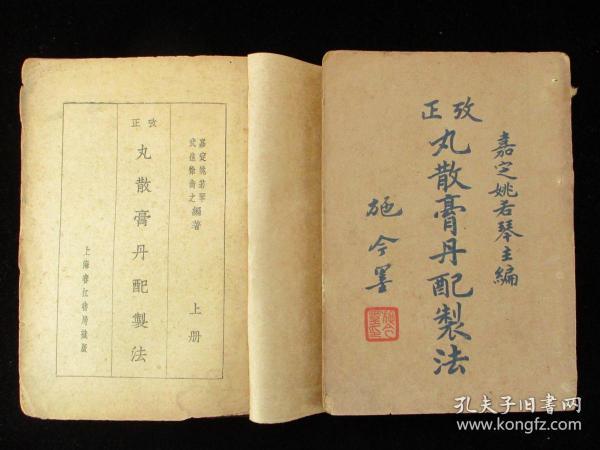 嘉定姚若琴主編
攷正
丸散膏丹配製法
施今墨
嘉定姚若琴
武進徐衡之
編著
上册
攷正
丸散膏丹配製法
上海春江書局
孔夫子旧书网
www.kongfz.com